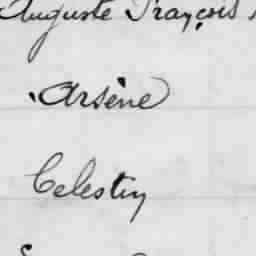 Auguste François
Arsène
Celestin